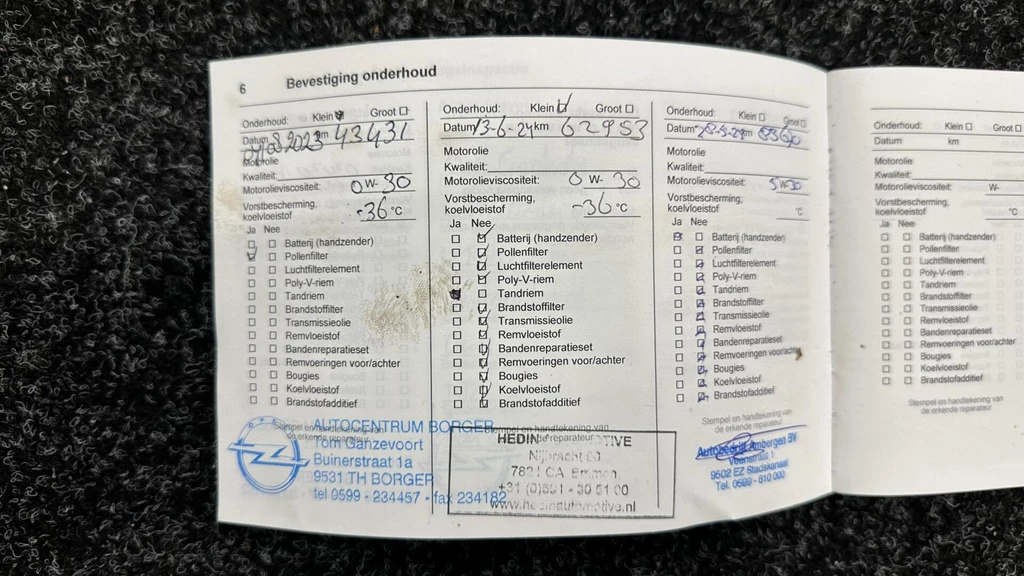 6 Bevestiging onderhoud
Onderhoud: Klein Groot
Datum 2023 km 43431
Motorolie
Kwaliteit:
Motorolieviscositeit: 0W-30
Vorstbescherming,
koelvloeistof -36 °C
Ja Nee
Batterij (handzender)
Pollenfilter
Luchtfilterelement
Poly-V-riem
Tandriem
Brandstoffilter
Transmissieolie
Remvloeistof
Bandenreparatieset
Remvoeringen voor/achter
Bougies
Koelvloeistof
Brandstofadditief
Stempel en handtekening van
de erkende reparateur
AUTOCENTRUM BORGER
Tim Ganzevoort
Buinerstraat 1a
9531 TH BORGER
tel 0599 - 234457 - fax 234182
Onderhoud: Klein Groot
Datum 13-6-24 km 62953
Motorolie
Kwaliteit:
Motorolieviscositeit: 0 W- 30
Vorstbescherming,
koelvloeistof -36 °C
Ja Nee
Batterij (handzender)
Pollenfilter
Luchtfilterelement
Poly-V-riem
Tandriem
Brandstoffilter
Transmissieolie
Remvloeistof
Bandenreparatieset
Remvoeringen voor/achter
Bougies
Koelvloeistof
Brandstofadditief
Stempel en handtekening van
de erkende reparateur
HEDIN AUTOMOTIVE
7821 CA Emmen
www.hedinautomotive.nl
Onderhoud: Klein Groot
Datum km
Motorolie
Kwaliteit:
Motorolieviscositeit: 5W30
Vorstbescherming,
koelvloeistof °C
Ja Nee
Batterij (handzender)
Pollenfilter
Luchtfilterelement
Poly-V-riem
Tandriem
Brandstoffilter
Transmissieolie
Remvloeistof
Bandenreparatieset
Remvoeringen voor/achter
Bougies
Koelvloeistof
Brandstofadditief
Stempel en handtekening van
de erkende reparateur
Autobedrijf Ambergen BV
Veenstraat 1
9502 EZ Stadskanaal
Tel. 0599 - 610 000
Onderhoud: Klein Groot
Datum km
Motorolie
Kwaliteit:
Motorolieviscositeit: W-
Vorstbescherming,
koelvloeistof °C
Ja Nee
Batterij (handzender)
Pollenfilter
Luchtfilterelement
Poly-V-riem
Tandriem
Brandstoffilter
Transmissieolie
Remvloeistof
Bandenreparatieset
Remvoeringen voor/achter
Bougies
Koelvloeistof
Brandstofadditief
Stempel en handtekening van
de erkende reparateur